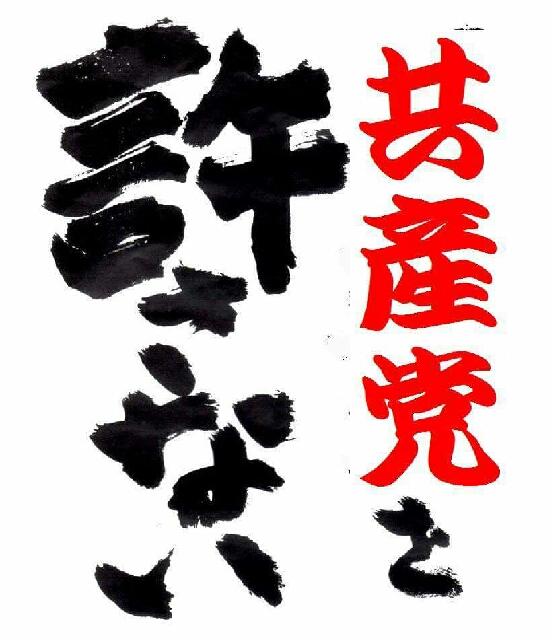 共産党を
許さない